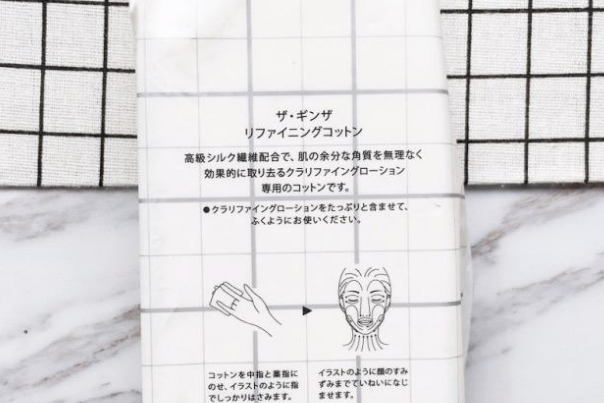 ザ・ギンザ
リファイニングコットン
高級シルク繊維配合で、肌の余分な角質を無理なく
効果的に取り去るクラリファイングローション
専用のコットンです。
●クラリファイングローションをたっぷりと含ませて、
ふくようにお使いください。
コットンを中指と薬指に
のせ、イラストのように指
でしっかりはさみます。
イラストのように顔のすみ
ずみまでていねいになじ
ませます。